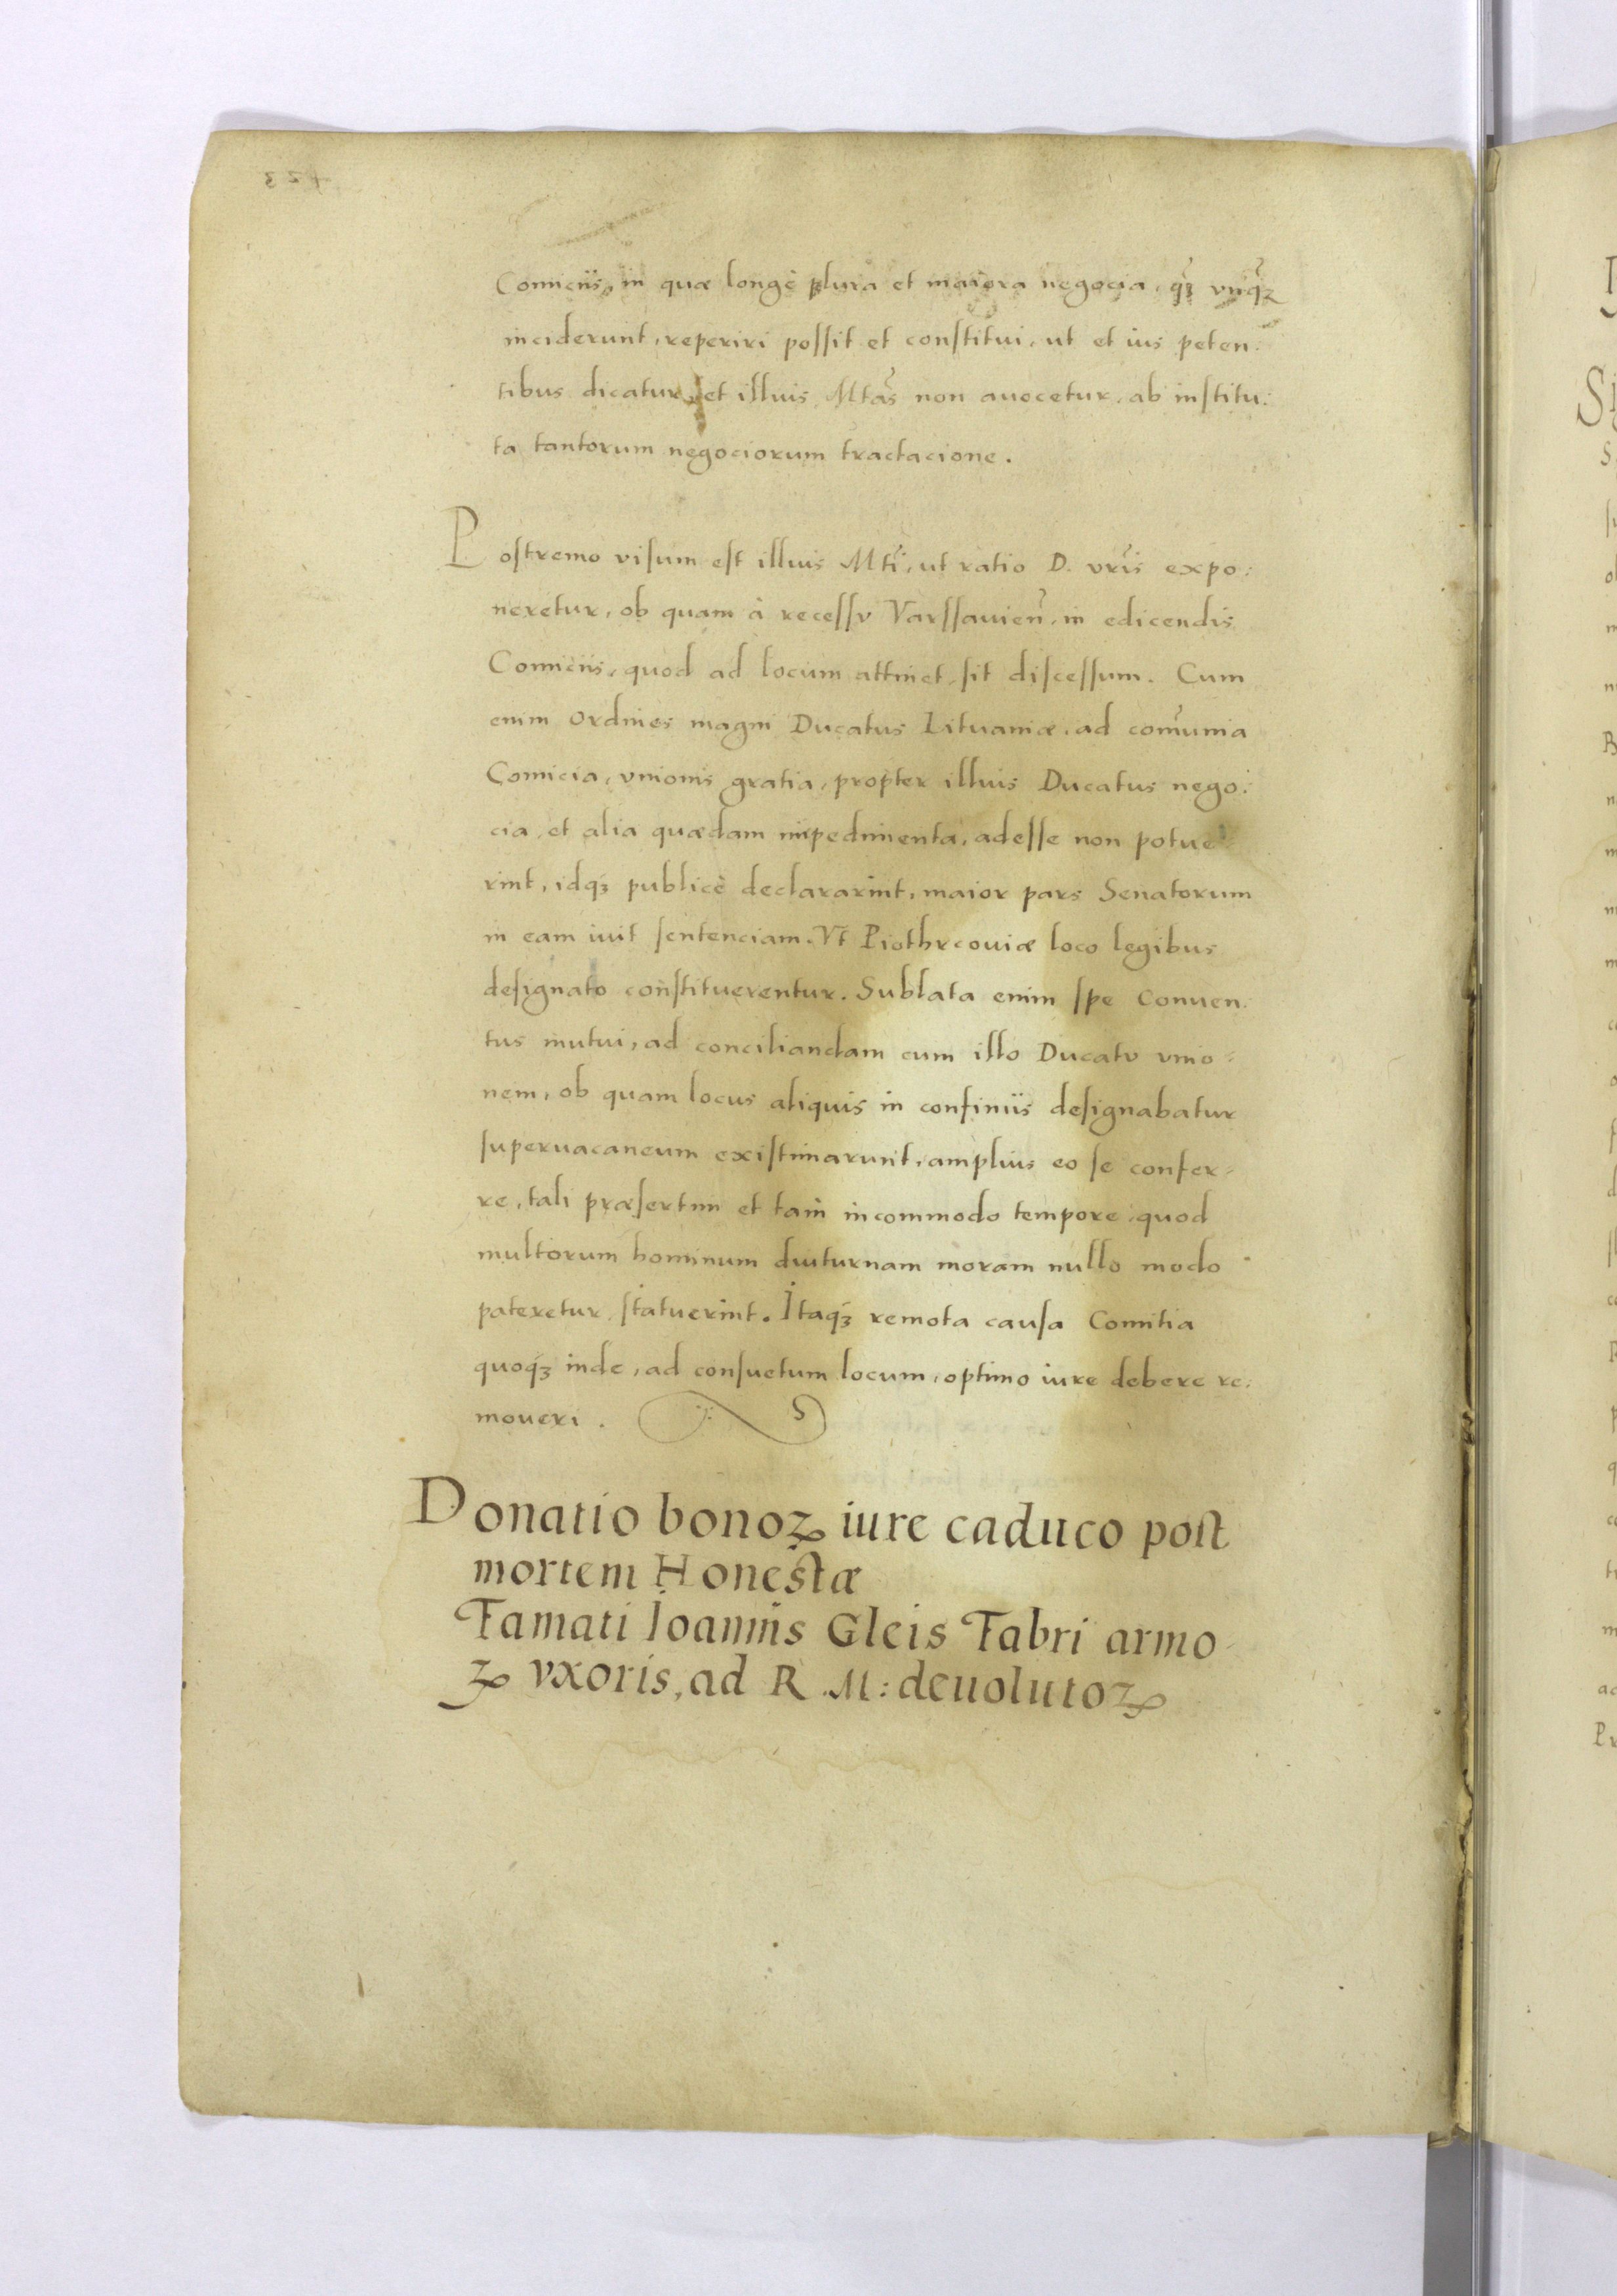 Comiciis, in quæ longè plura et maiora negocia, q̃ȝ vnq̃ȝ
inciderunt, reperiri possit et constitui, ut et ius peten:
tibus dicatur, et illius Mtãs non auocetur, ab institu:
ta tantorum negociorum tractacione.
Postremo visum est illius Mtĩ, ut ratio D. vrĩs expo:
neretur, ob quam à recessv Varssauieñ, in edicendis
Comiciis, quod ad locum attinet, sit discessum. Cum
enim Ordines magni Ducatus Lituaniæ, ad com̃unia
Comicia, vnionis gratia, propter illius Ducatus nego:
cia, et alia quædam impedimenta, adesse non potue
rint, idqȝ publicè declararint, maior pars Senatorum
in eam iuit sentenciam. Vt Piothrcouiæ loco legibus
designato constituerentur. Sublata enim spe Conuen:
tus mutui, ad conciliandam cum illo Ducatv vnio:
nem, ob quam locus aliquis in confiniis designabatur
superuacaneum existimarunt, amplius eo se confer:
re, tali præsertim et tam incommodo tempore, quod
multorum hominum diuturnam moram nullo modo
pateretur, statuerint. Itaqȝ remota causa Comitia
quoqȝ inde, ad consuetum locum, optimo iure debere re:
moueri.
Donatio bonoꝝ iure caduco post
mortem Honestæ
Famati Ioannis Gleis Fabri armo
ꝝ vxoris, ad R. M: deuolutoꝝ